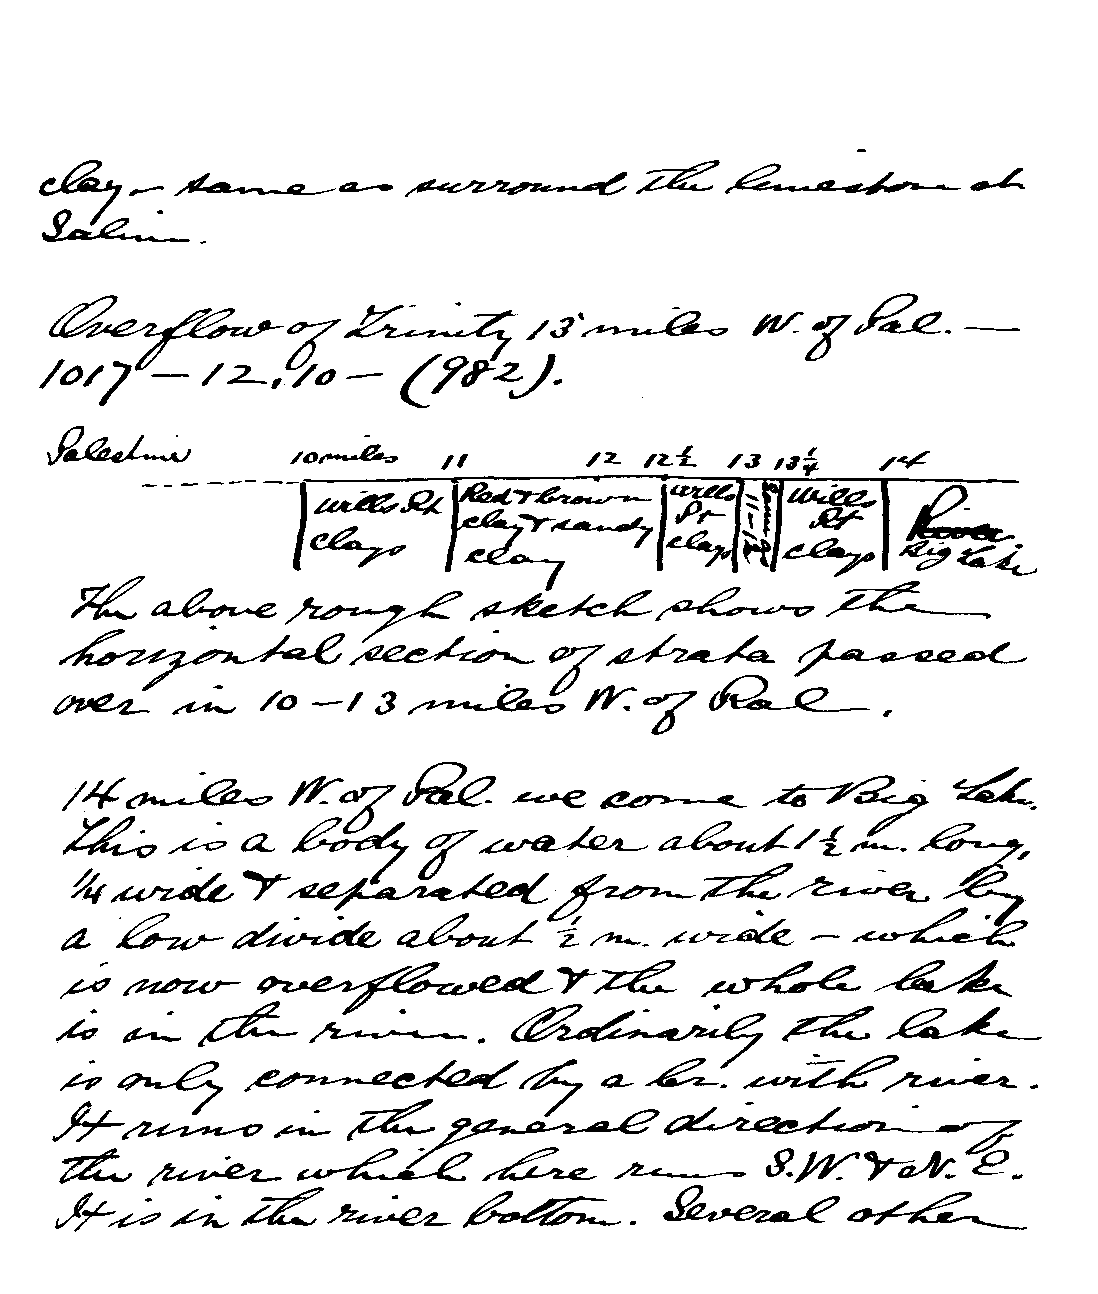 clay – same as surround the limestone at
Saline.
Overflow of Trinity 13 miles W. of Pal. —
1017 — 12.10 — (982).
Palestine 10 miles 11 12 12½ 13 13¼ 14
Wills Pt clays
Red & brown clay & sandy clay
Wills Pt clays
11-12
Wills Pt clays
River Big Lake
The above rough sketch shows the
horizontal section of strata passed
over in 10 – 13 miles W. of Pal.
14 miles W. of Pal. we come to Big Lake.
This is a body of water about 1½ m. long,
¼ wide & separated from the river by
a low divide about ½ m. wide – which
is now overflowed & the whole lake
is in the river. Ordinarily the lake
is only connected by a br. with river.
It runs in the general direction of
the river which here runs S.W. & N.E.
It is in the river bottom. Several other